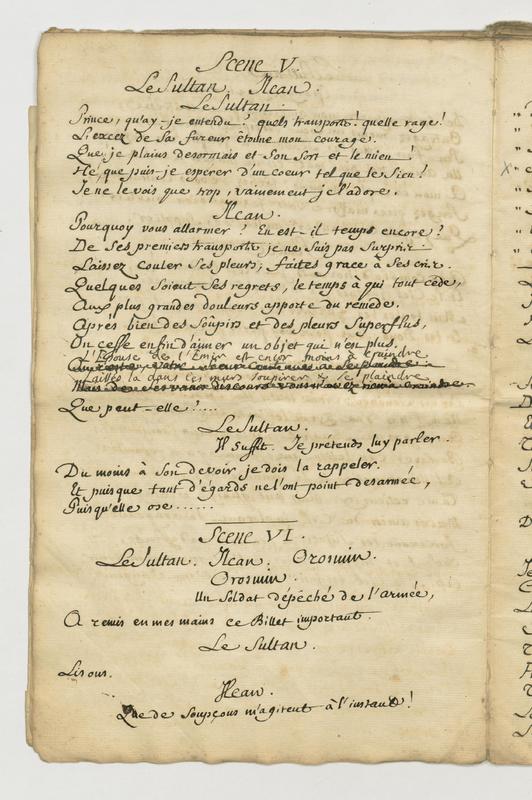 Scene V.
Le Sultan. Nean.
Le Sultan.
Prince, qu'ay-je entendu? quels transports! quelle rage!
L'excez de sa fureur étonne mon courage.
Que je plains desormais et son sort et le mien!
Hé, que puis-je esperer d'un coeur tel que le sien!
Je ne le vois que trop, vainement je l'adore.
Nean.
Pourquoy vous allarmer? En est-il temps encore?
De ses premiers transports je ne suis pas surpris.
Laissez couler ses pleurs; faites grace à ses cris.
Quelques soient ses regrets, le temps à qui tout cede,
Aux plus grandes douleurs apporte du remede.
Après bien des soûpirs et des pleurs superflus,
On cesse enfin d'aimer un objet qui n'est plus.
L'Epouse de l'Emir est encor moins à craindre
Laissez la dans ces murs soupirer & se plaindre
Mais de ses vains discours vous n'avez rien à craindre
Que peut-elle?....
Le Sultan.
Il suffit. Je prétends luy parler.
Du moins à son devoir je dois la rappeler.
Et puisque tant d'égards ne l'ont point desarmée,
Puisqu'elle ose......
Scene VI.
Le Sultan. Nean. Orosmin.
Orosmin.
Un soldat dépêché de l'armée,
A remis en mes mains ce Billet important.
Le Sultan.
Lisons.
Nean.
Que de soupçons m'agitent à l'instant!